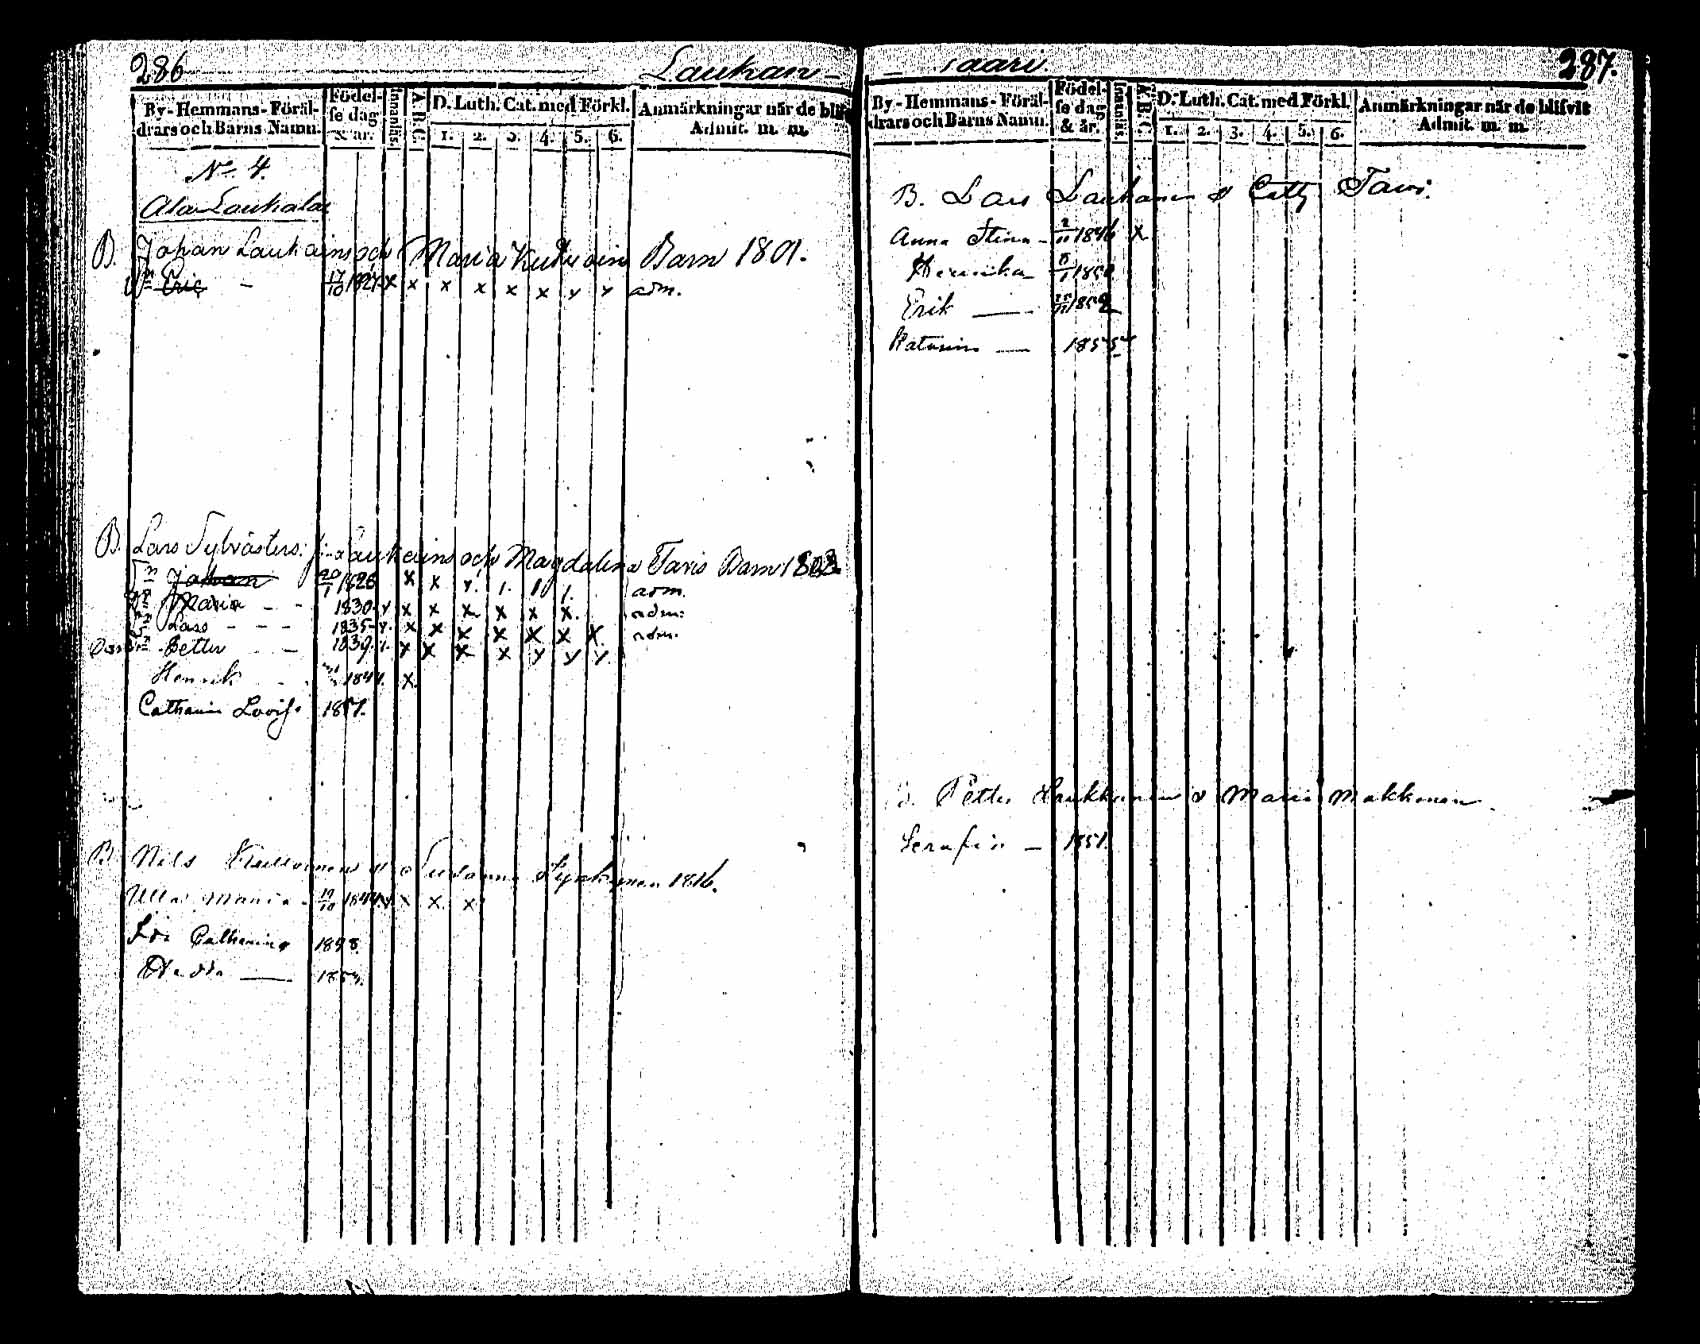 286
Laukan-
By-Hemmans-Föräl-
drars och Barns Namn.
Födel-
se dag
& år.
Innanläs.
A.B.C.
D. Luth. Cat. med Förkl.
1. 2. 3. 4. 5. 6.
Anmärkningar når de blifvit
Admit. m. m.
No. 4.
Ala Laukala
B. Johan Laukain och Maria Barn 1801.
Eric - 17/10 1827 x x x x x x x x adm.
B. Lars Sylvästers: Laukains och Magdalena Tavis Barn 1803
Johan 20/1 1828 x x x 1. 1 1. adm.
Maria - - 1830 x x x x x x x adm:
Lars - - - 1835 x x x x x x x x adm.
Petter - - 1839 x x x x x x x
Henrik - - 1844. x
Catharin Lovisa 1851.
B. Nils Susanna 1816.
Ulla Maria - 19/10 1844 x x x x
Catharina 1848.
Hedda ——
287.
saari
By-Hemmans-Föräl-
drars och Barns Namn.
Födel-
se dag
& år.
Innanläs.
A.B.C.
D. Luth. Cat. med Förkl.
1. 2. 3. 4. 5. 6.
Anmärkningar når de blifvit
Admit. m. m.
B. Lars Laukanen & Cath Tavi.
Anna Stina - 2/11 1846 x
Henrika 1850
Erik —— 1852
Katarin — 1855
B. Petter Laukkanen & Maria Makkonen.
Serafin — 1851.